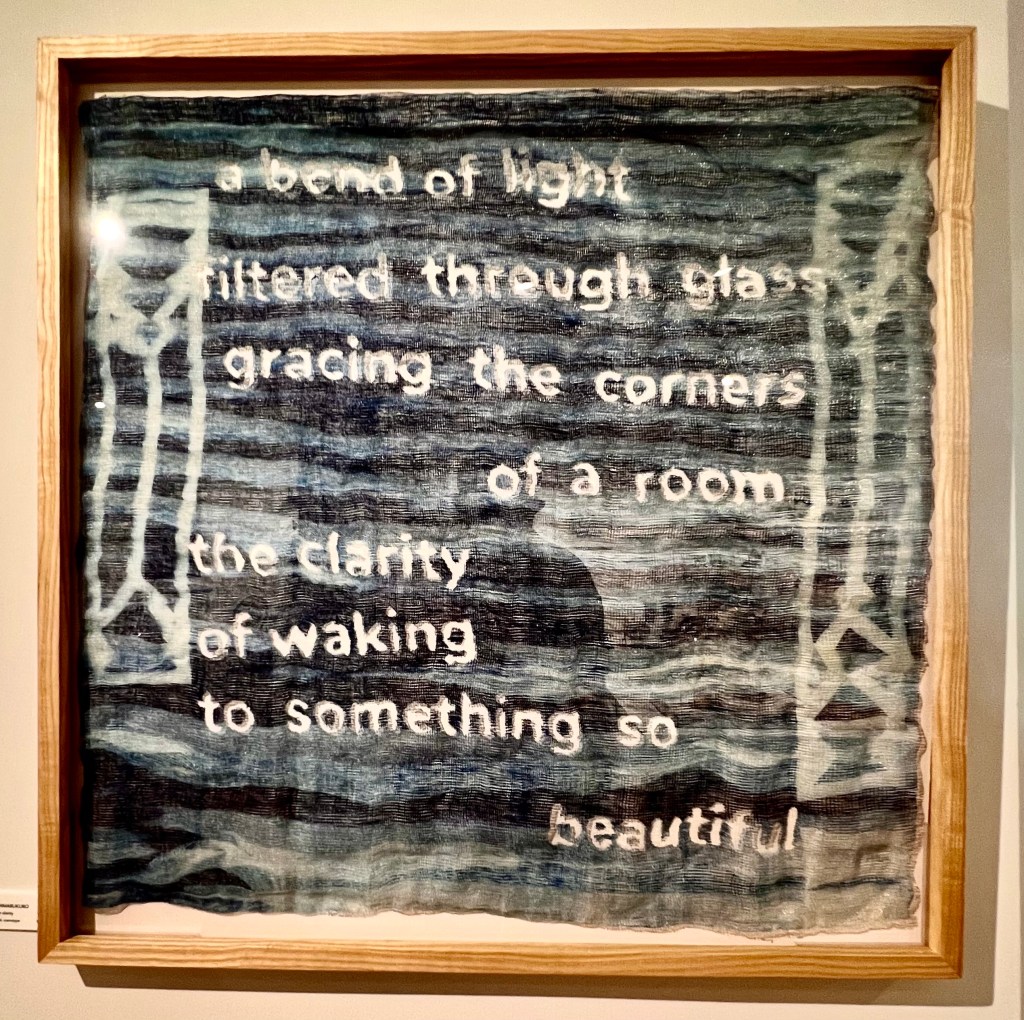 a bend of light
filtered through glass
gracing the corners
of a room
the clarity
of waking
to something so
beautiful